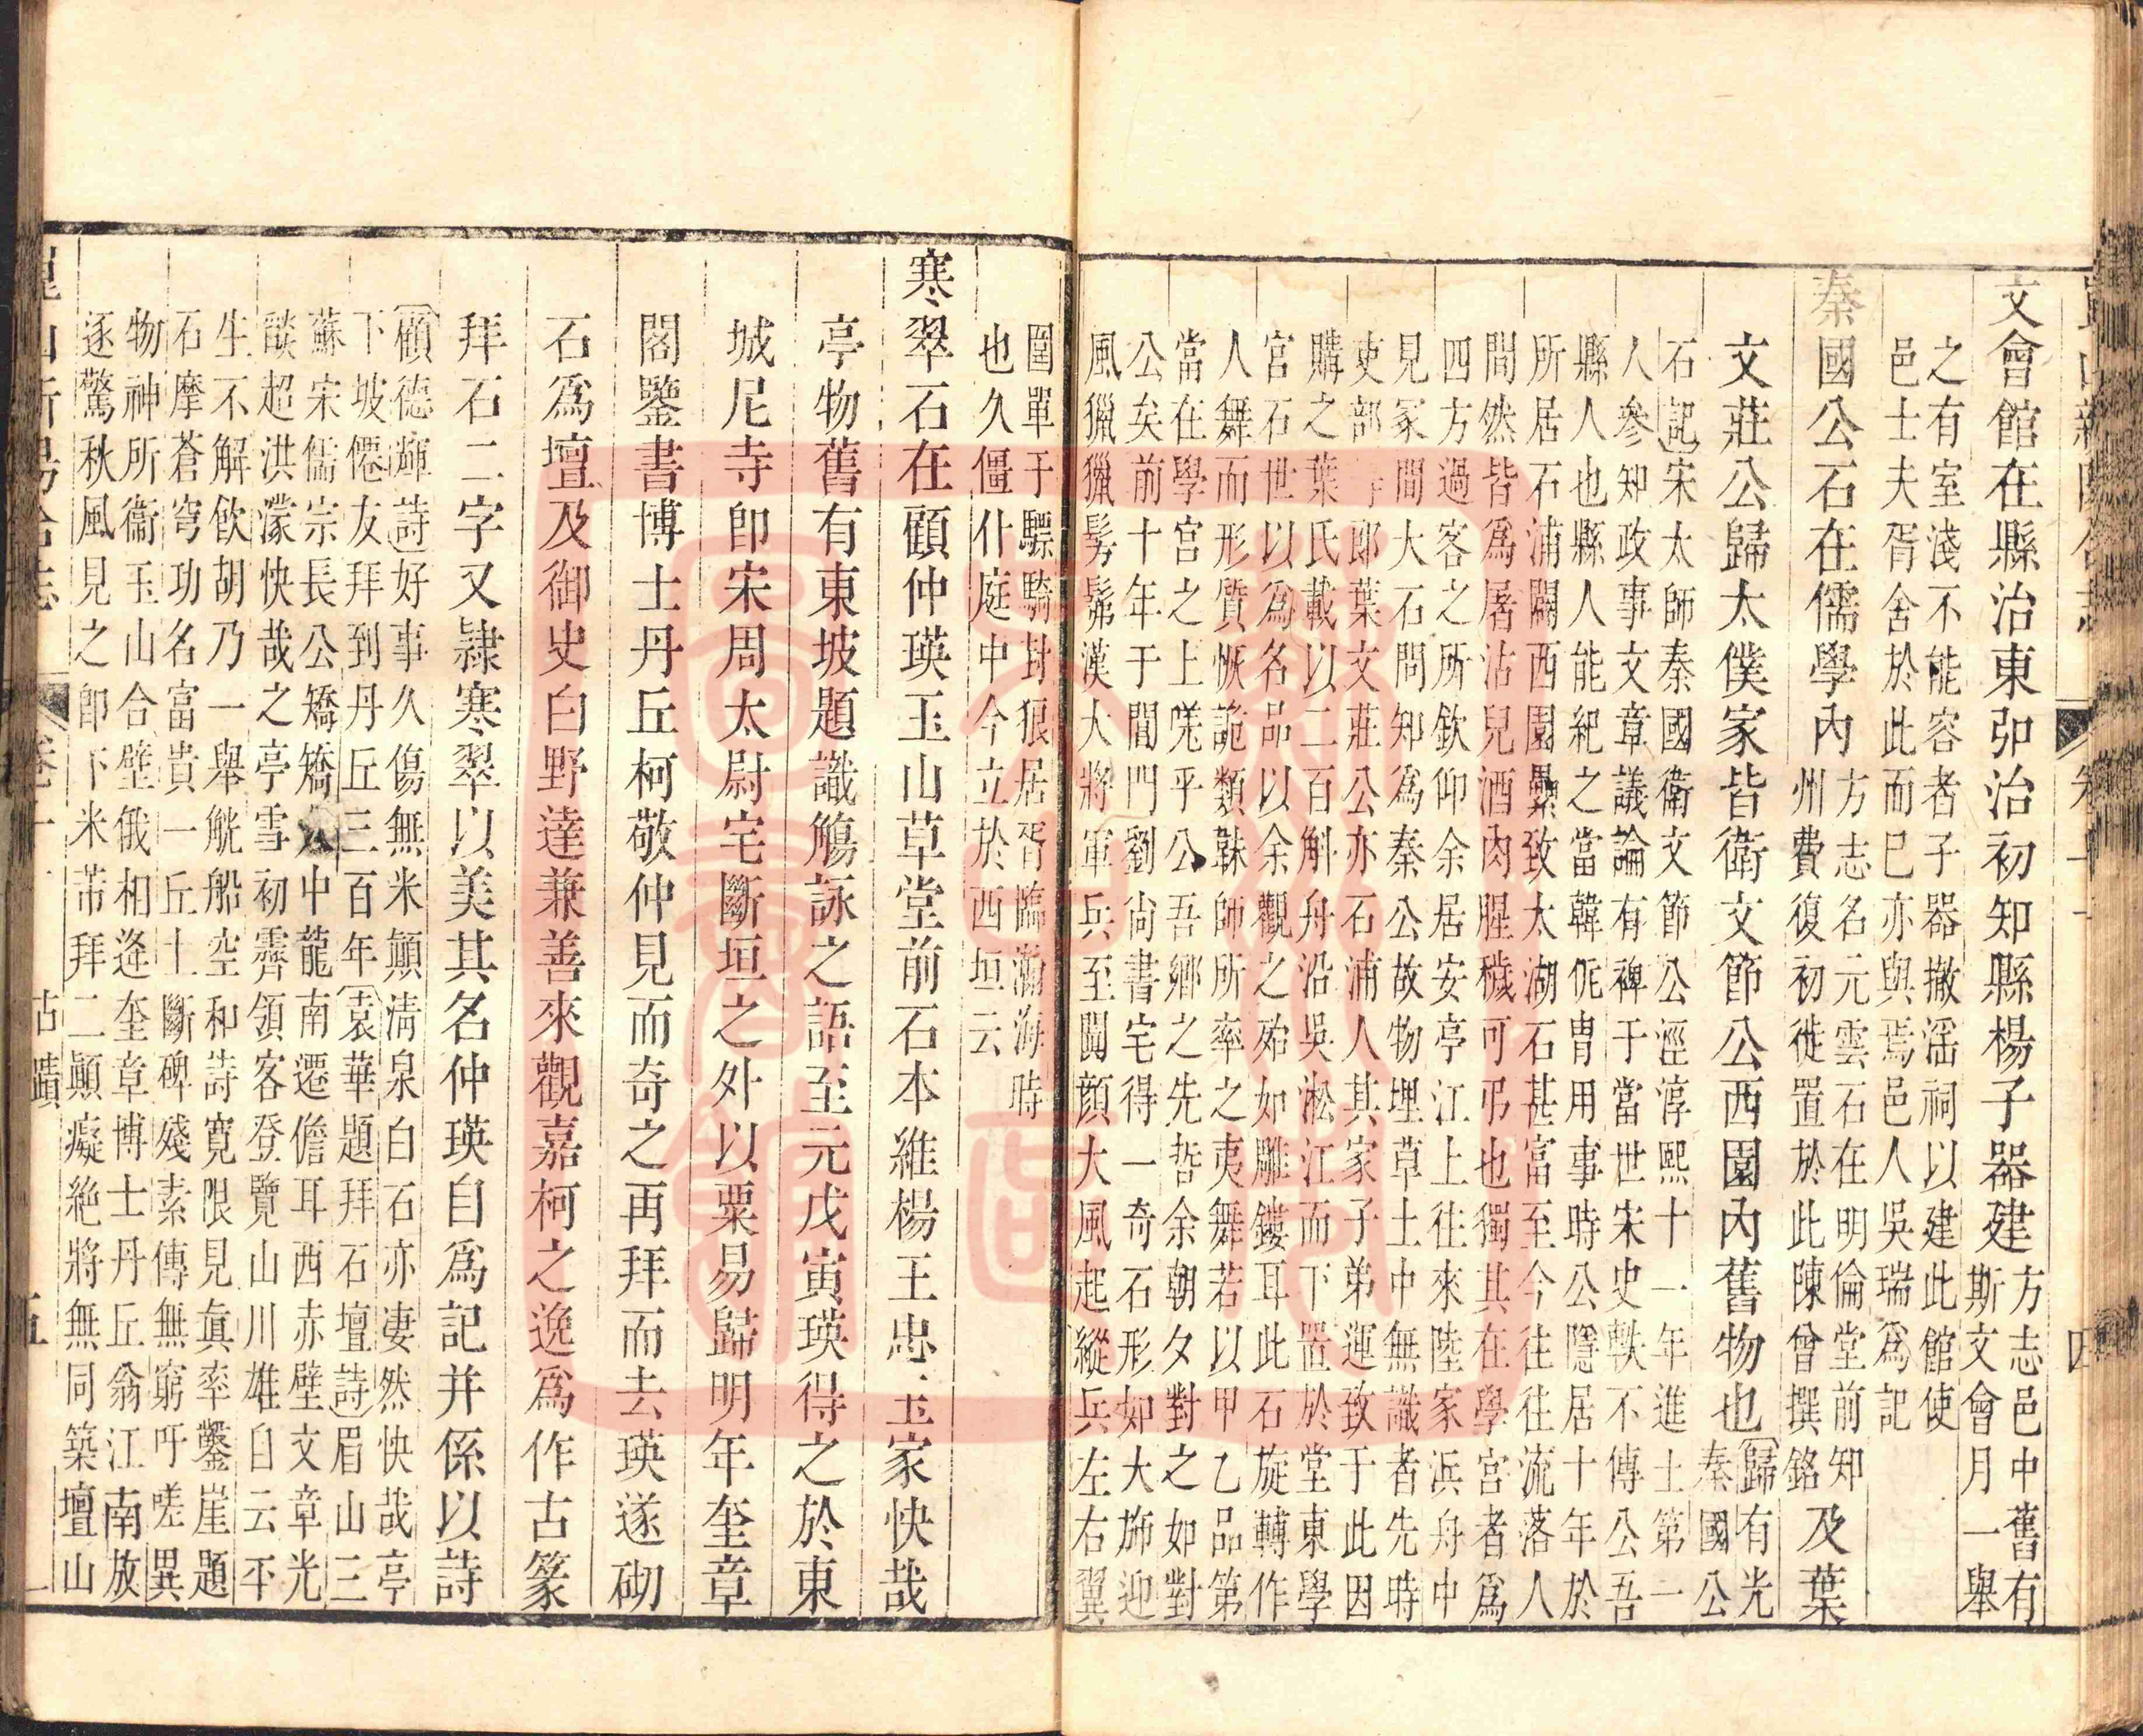 文會館在縣治東卯治初知縣楊子器建方志邑中舊有
斯文會月一舉
之有室淺不能容者子器撤淫祠以建此館使
邑士夫胥舍於此而已亦與焉邑人吳瑞為記
秦國公石在儒學內方志名元雲石在明倫堂前知
州費復初徙置於此陳曾撰銘及葉
文莊公歸太僕家皆衛文節公西園內舊物也歸有光
秦國公
石記宋太師秦國衛文節公涇淳熙十一年進士第一
人參知政事文章議論有裨于當世宋史軼不傳公吾
縣人也縣人能紀之當韓侂胄用事時公隱居十年於
所居石浦闢西園疊致太湖石甚富至今往往流落人
間然皆為屠沽兒酒肉腥穢可弔也獨其在學宮者為
四方過客之所欽仰余居安亭江上往來陸家浜舟中
見冢間大石問知為秦公故物埋草土中無識者先時
吏部郎葉文莊公亦石浦人其家子弟運致于此因
購之葉氏載以二百斛舟沿吳淞江而下置於堂東學
宮石世以為名品以余觀之殆如雕鏤耳此石旋轉作
人舞而形質恢詭類韎師所率之夷舞若以甲乙品第
當在學宮之上嘆乎公吾鄉之先哲余朝夕對之如對
公矣前十年于閶門劉尚書宅得一奇石形如大旆迎
風獵獵髣髴漢大將軍兵至闐顏大風起縱兵左右翼
圍單于驃騎封狼居胥臨瀚海時
也久僵仆庭中今立於西垣云
寒翠石在顧仲瑛玉山草堂前石本維楊王忠玉家快哉
亭物舊有東坡題識觴詠之語至元戊寅瑛得之於東
城尼寺即宋周太尉宅斷垣之外以粟易歸明年奎章
閣鑒書博士丹丘柯敬仲見而奇之再拜而去瑛遂砌
石為壇及御史白野達兼善來觀嘉柯之逸為作古篆
拜石二字又隸寒翠以美其名仲瑛自為記并係以詩
顧德輝詩好事久傷無米顛清泉白石亦淒然快哉亭
下坡僊友拜到丹丘三百年袁華題拜石壇詩眉山三
蘇宋儒宗長公矯矯人中龍南遷儋耳西赤壁文章光
燄超洪濛快哉之亭雪初霽領客登覽山川雄自云平
生不解飲胡乃一舉觥船空和詩寬限見真率鑿崖題
石摩蒼穹功名富貴一丘土斷碑殘素傳無窮吁嗟異
物神所衛玉山合壁俄相逢奎章博士丹丘翁江南放
逐驚秋風見之即下米芾拜二顛癡絕將無同築壇山
古蹟